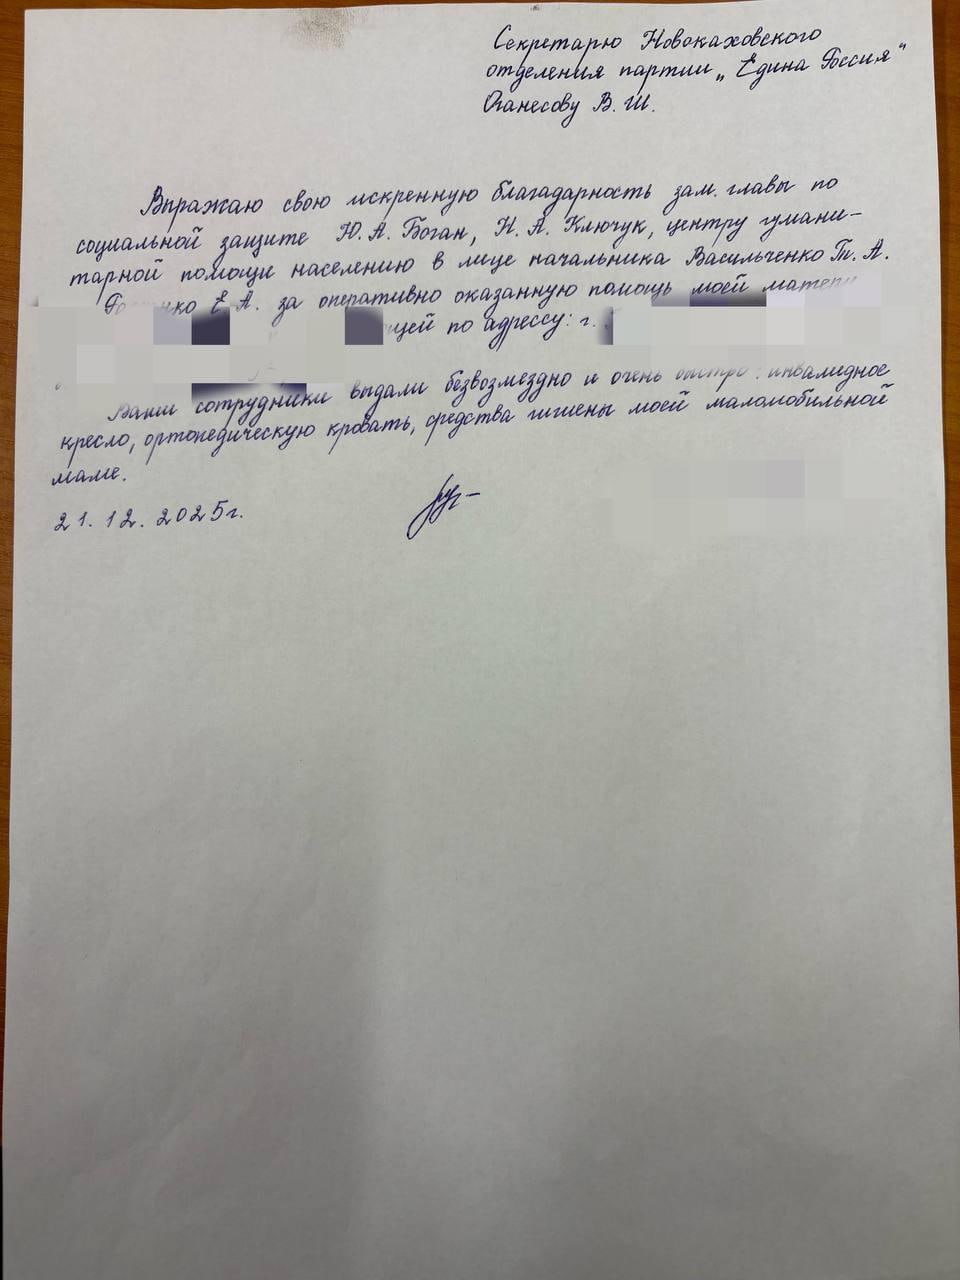 Секретарю Новокаховского
отделения партии „Едина Россия"
Оганесову В. Ш.
Выражаю свою искренную благадарность зам. главы по
социальной защите Ю. А. Боган, Н. А. Ключук, центру гумани-
тарной помощи населению в лице начальника Васильченко Т. А.
Е. А. за оперативно оказанную помощь моей матери
по адрессу: г.
Ваши сотрудники выдали безвозмездно и очень быстро: инвалидное
кресло, ортопедическую кровать, средства гигиены моей маломобильной
маме.
21. 12. 2025г.